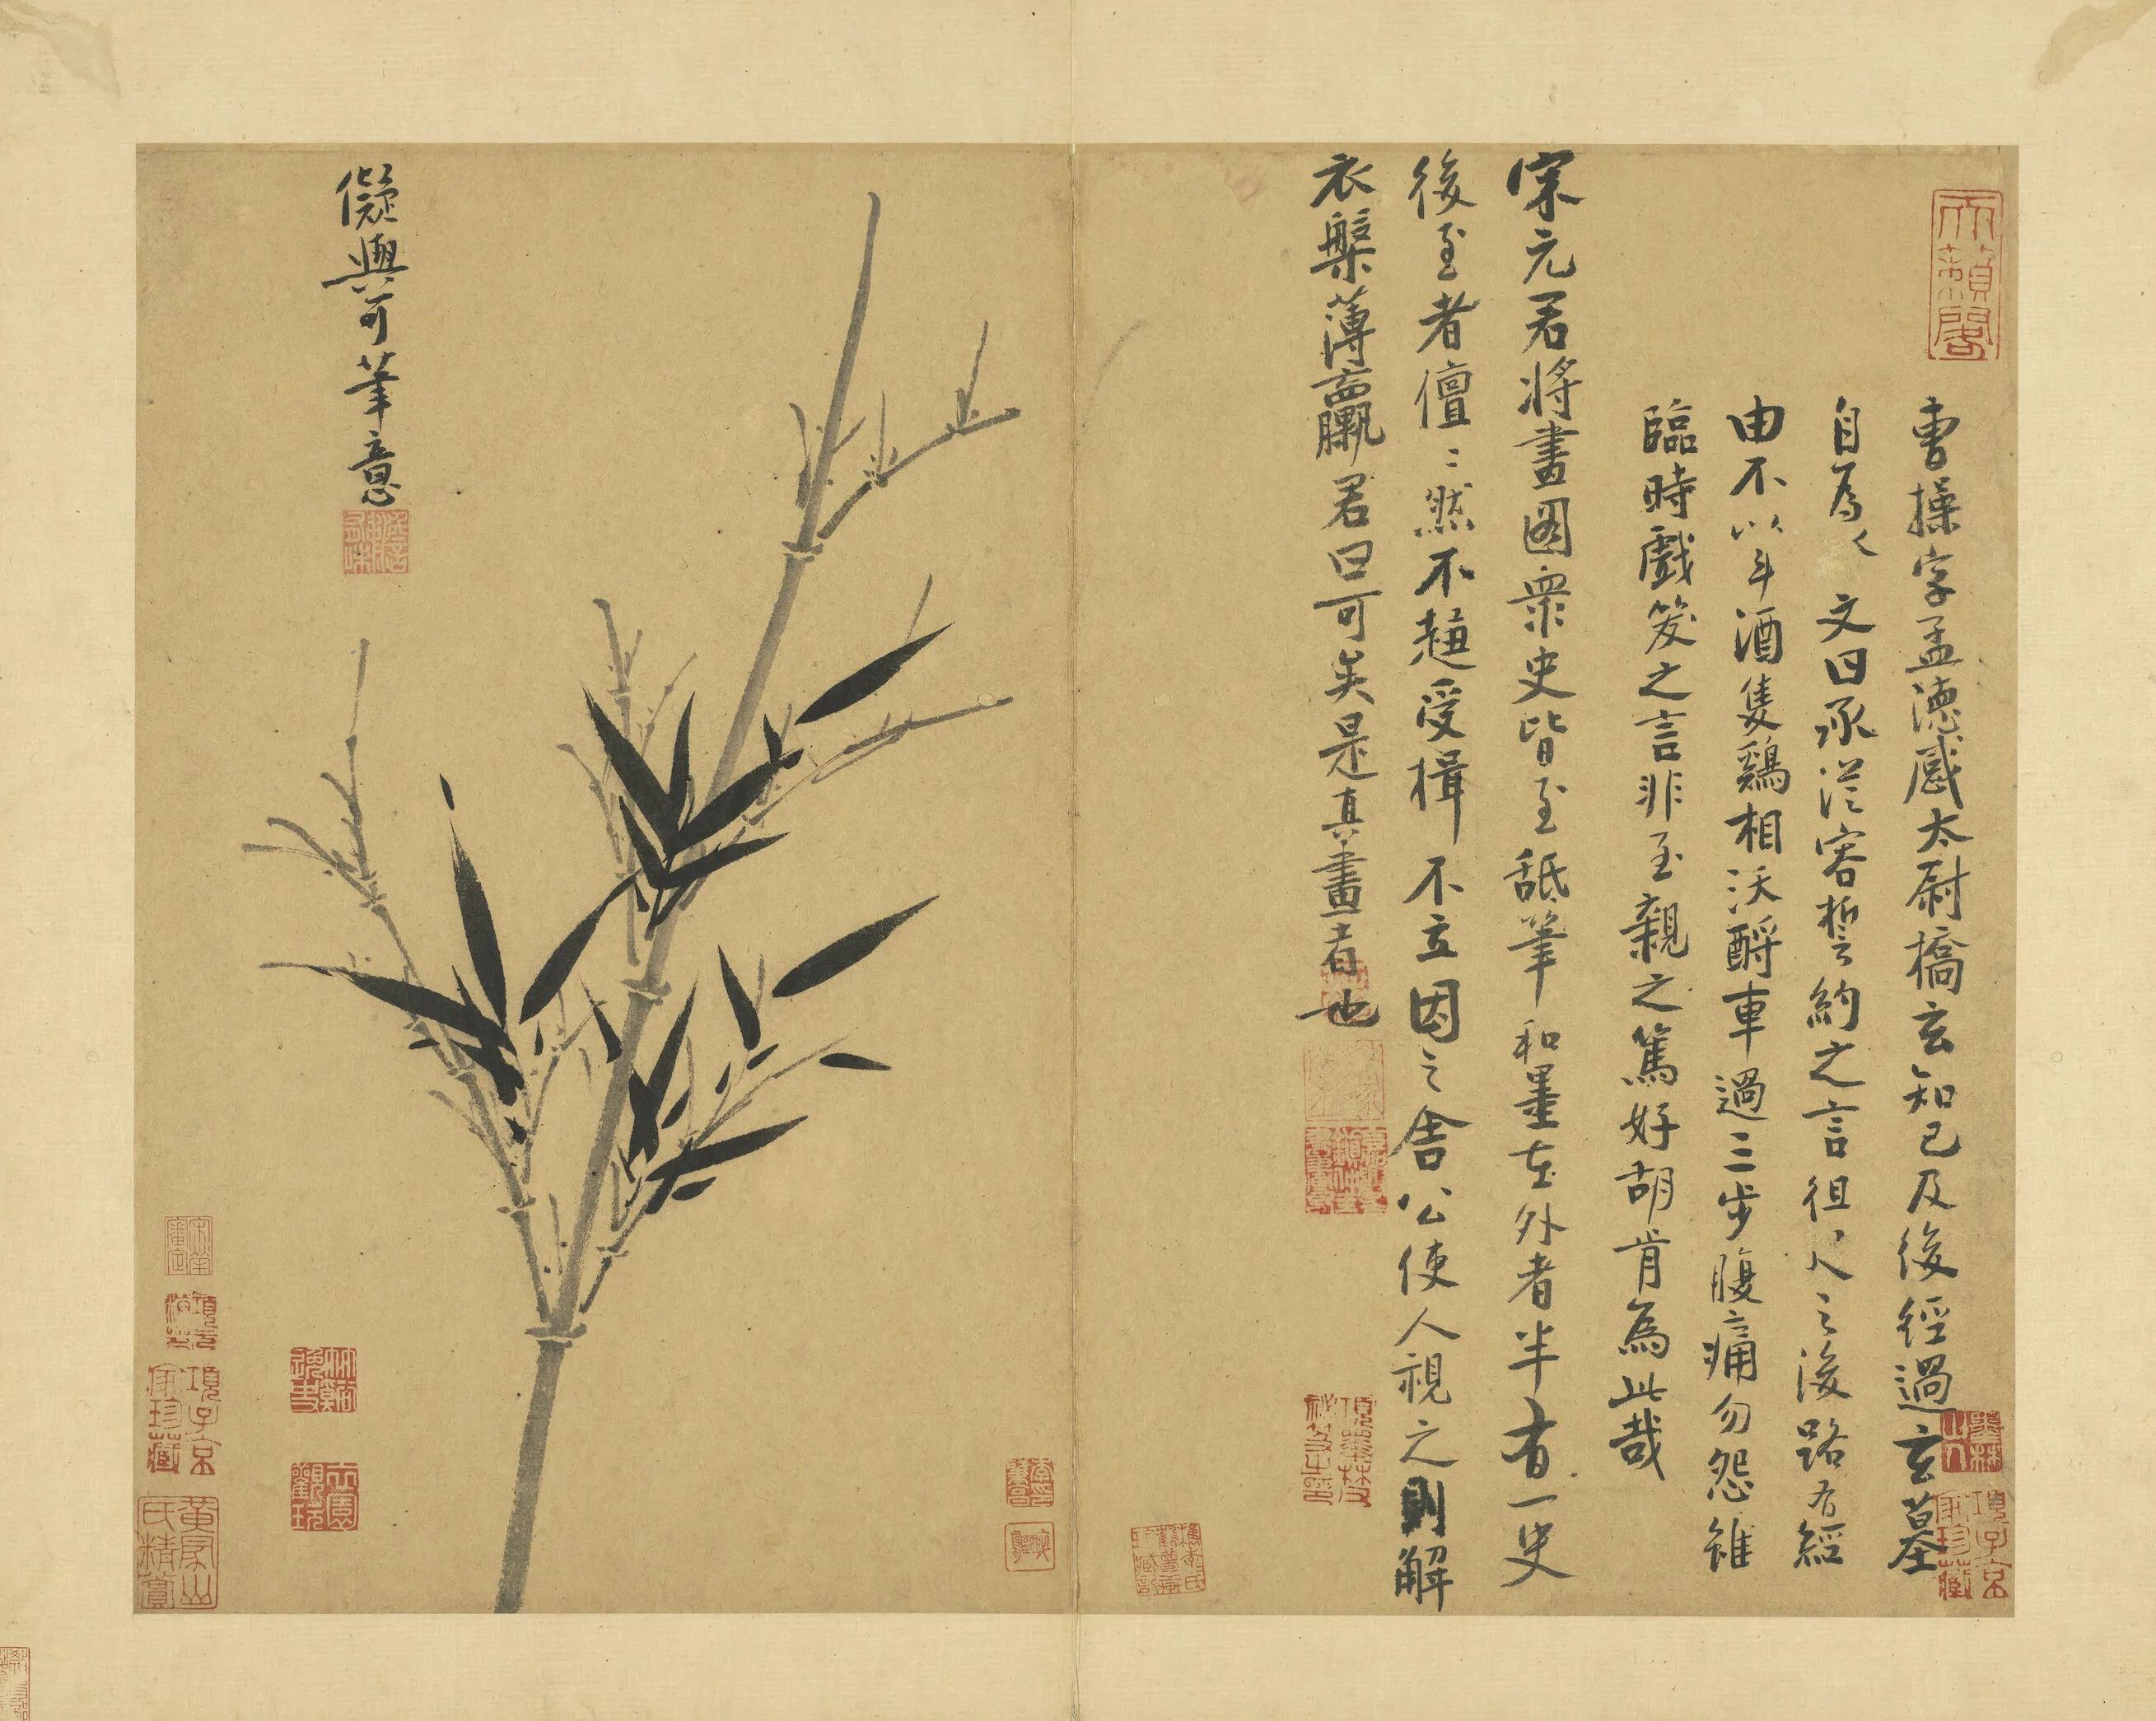 天籟閣
曹操字孟德感太尉橋玄知己及後經過玄墓
自為文曰承從容誓約之言徂𠆤之後路有經
由不以斗酒隻鷄相沃酹車過三步腹痛勿怨雖
臨時戲笑之言非至親之篤好胡肯為此哉
宋元君將畫圖衆史皆至舐筆和墨在外者半有一史
後至者儃〻然不趨受揖不立因之舍公使人視之則解
衣槃薄臝君曰可矣是真畫者也
儗與可筆意
項子京家珍藏
墨林山人
項子京家珍藏